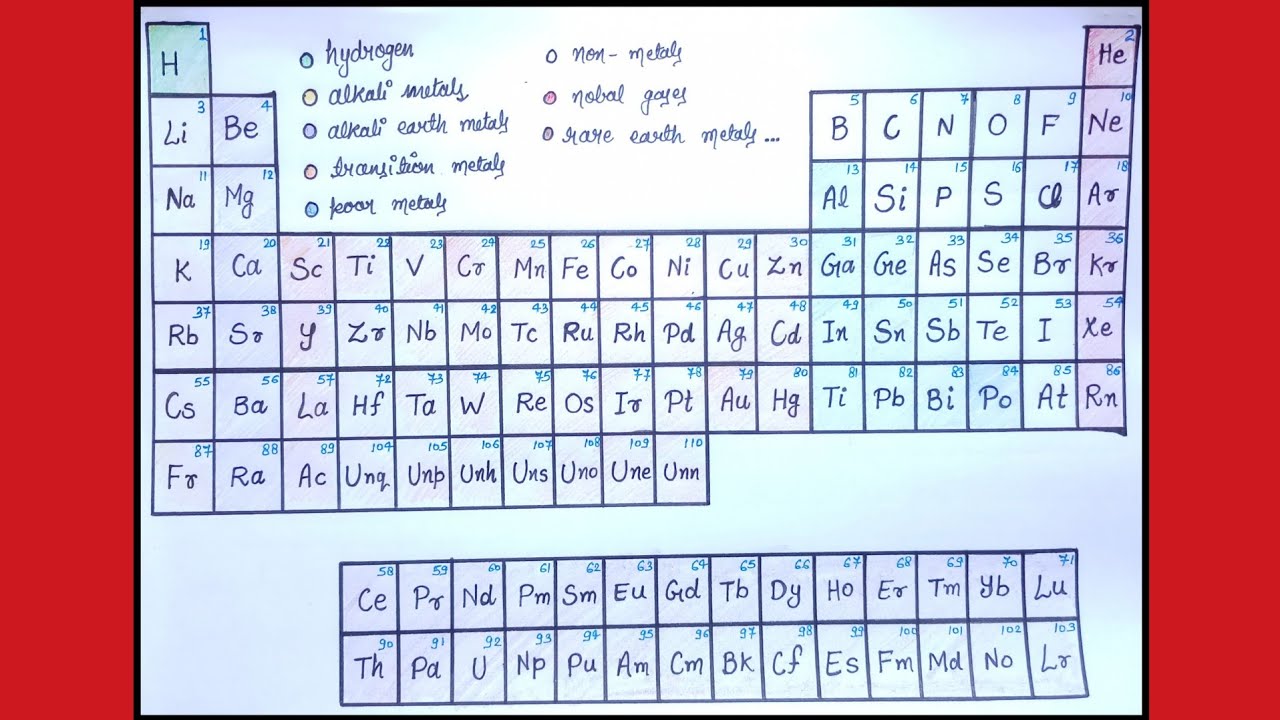 1 2
H hydrogen non-metals He
alkali metals nobal gases
3 4 5 6 7 8 9 10
Li Be alkali earth metals rare earth metals... B C N O F Ne
transition metals
11 12 13 14 15 16 17 18
Na Mg poor metals Al Si P S Cl Ar
19 20 21 22 23 24 25 26 27 28 29 30 31 32 33 34 35 36
K Ca Sc Ti V Cr Mn Fe Co Ni Cu Zn Ga Ge As Se Br Kr
37 38 39 40 41 42 43 44 45 46 47 48 49 50 51 52 53 54
Rb Sr Y Zr Nb Mo Tc Ru Rh Pd Ag Cd In Sn Sb Te I Xe
55 56 57 72 73 74 75 76 77 78 79 80 81 82 83 84 85 86
Cs Ba La Hf Ta W Re Os Ir Pt Au Hg Ti Pb Bi Po At Rn
87 88 89 104 105 106 107 108 109 110
Fr Ra Ac Unq Unp Unh Uns Uno Une Unn
58 59 60 61 62 63 64 65 66 67 68 69 70 71
Ce Pr Nd Pm Sm Eu Gd Tb Dy Ho Er Tm Yb Lu
90 91 92 93 94 95 96 97 98 99 100 101 102 103
Th Pa U Np Pu Am Cm Bk Cf Es Fm Md No Lr